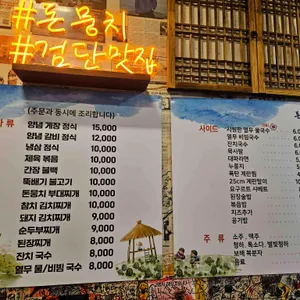 #돈뭉치
#검단맛집
(주문과 동시에 조리합니다)
류
양념 게장 정식 15,000
양념 갈비 정식 12,000
냉삼 정식 10,000
제육 볶음 10,000
간장 불백 10,000
뚝배기 불고기 10,000
돈뭉치 부대찌개 10,000
참치 김치찌개 10,000
돼지 김치찌개 9,000
순두부찌개 9,000
된장찌개 8,000
잔치 국수 8,000
열무 물/비빔 국수 8,000
사이드
시원한 열무 물국수
열무 비빔국수
잔치국수
육사발
대파라면
누룽지
폭탄 계란찜
25cm 계란말이
요구르트 샤베트
된장술밥
볶음밥
치즈추가
공기밥
주 류
소주, 맥주
청하, 톡소다, 별빛청하
보해 복분자
음료